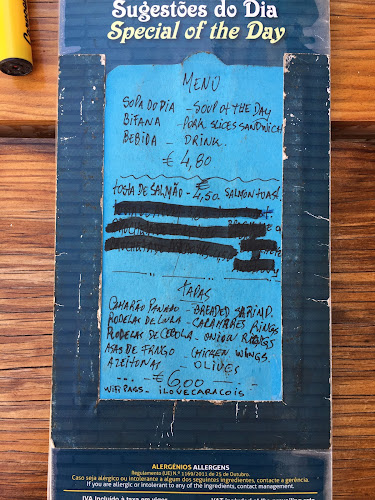 Sugestões do Dia
Special of the Day
MENU
SOPA DO DIA - SOUP OF THE DAY
BIFANA - PORK SLICES SANDWICH
BEBIDA - DRINK.
€ 4,80
TOSTA DE SALMÃO - € 4,50 SALMON TOAST.
TAPAS
CAMARÃO PANADO - BREADED
RODELAS DE LULA - CALAMARES RINGS
RODELAS DE CEBOLA - ONION RINGS
ASAS DE FRANGO - CHICKEN WINGS.
AZEITONAS - OLIVES
--- - €6,00 - - - -
WIFI PASS - ILOVECARACOIS
ALERGÉNIOS ALLERGENS
Regulamento (UE) N.º 1169/2011 de 25 de Outubro.
Caso seja alérgico ou intolerante a algum dos seguintes ingredientes, contacte a gerência.
If you are allergic or intolerant to any of the ingredients, contact management.
IVA incluído à taxa em vigor